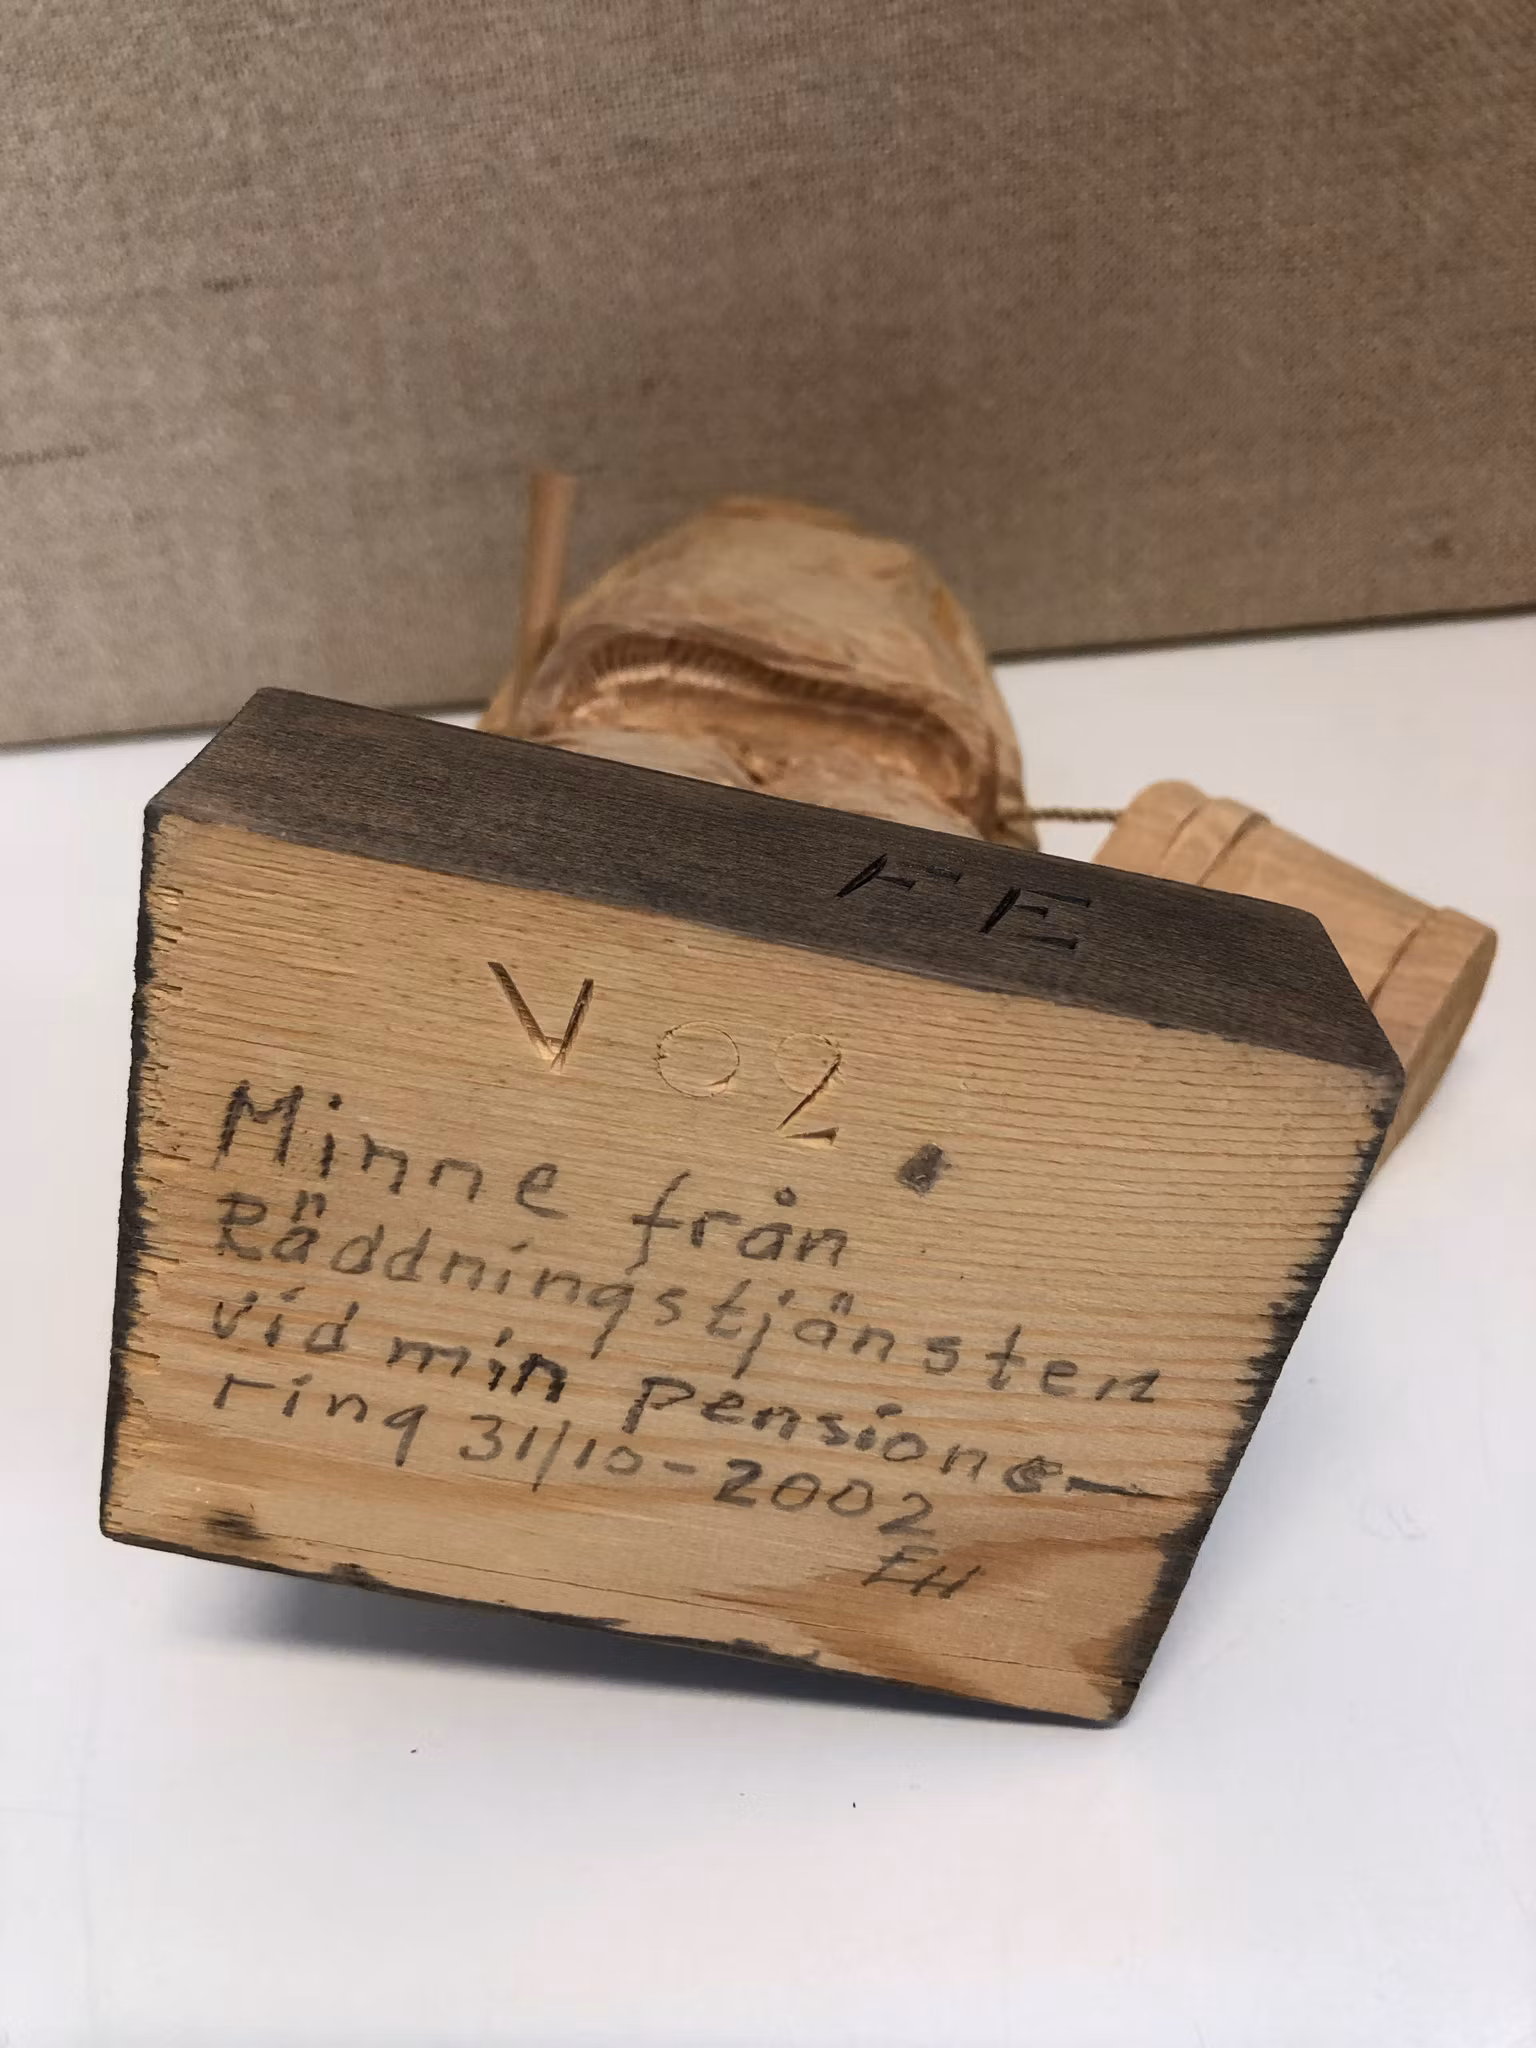 FE
V02
Minne från
Räddningstjänsten
vid min pensione-
ring 31/10-2002
EH